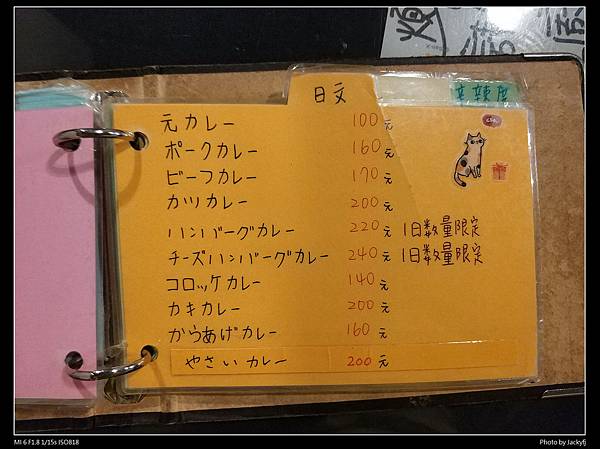 日文
辛辣度
元カレー 100元
ポークカレー 160元
ビーフカレー 170元
カツカレー 200元
ハンバーグカレー 220元 1日數量限定
チーズハンバーグカレー 240元 1日數量限定
コロッケカレー 140元
カキカレー 200元
からあげカレー 160元
やさいカレー 200元
MI 6 F1.8 1/15s ISO818
Photo by Jackyfj